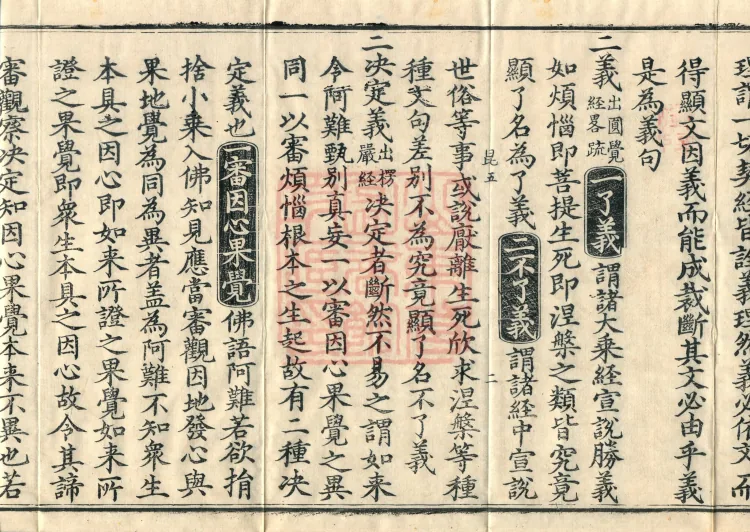 理謂一切契經皆詮義理然義必依文而
得顯文因義而能成裁斷其文必由乎義
是為義句
二義出圓覺經畧疏一了義謂諸大乘經宣說勝義
如煩惱即菩提生死即涅槃之類皆究竟
顯了名為了義二不了義謂諸經中宣說
昆五
二
世俗等事或說厭離生死欣求涅槃等種
種文句差別不為究竟顯了名不了義
二决定義出楞嚴經决定者斷然不易之謂如来
令阿難甄別真妄一以審因心果覺之異
同一以審煩惱根本之生起故有二種决
定義也一審因心果覺佛語阿難若欲捐
捨小乗入佛知見應當審觀因地發心與
果地覺為同為異者盖為阿難不知衆生
本具之因心即如来所證之果覺如来所
證之果覺即衆生本具之因心故令其諦
審觀察决定知因心果覺本来不異也若